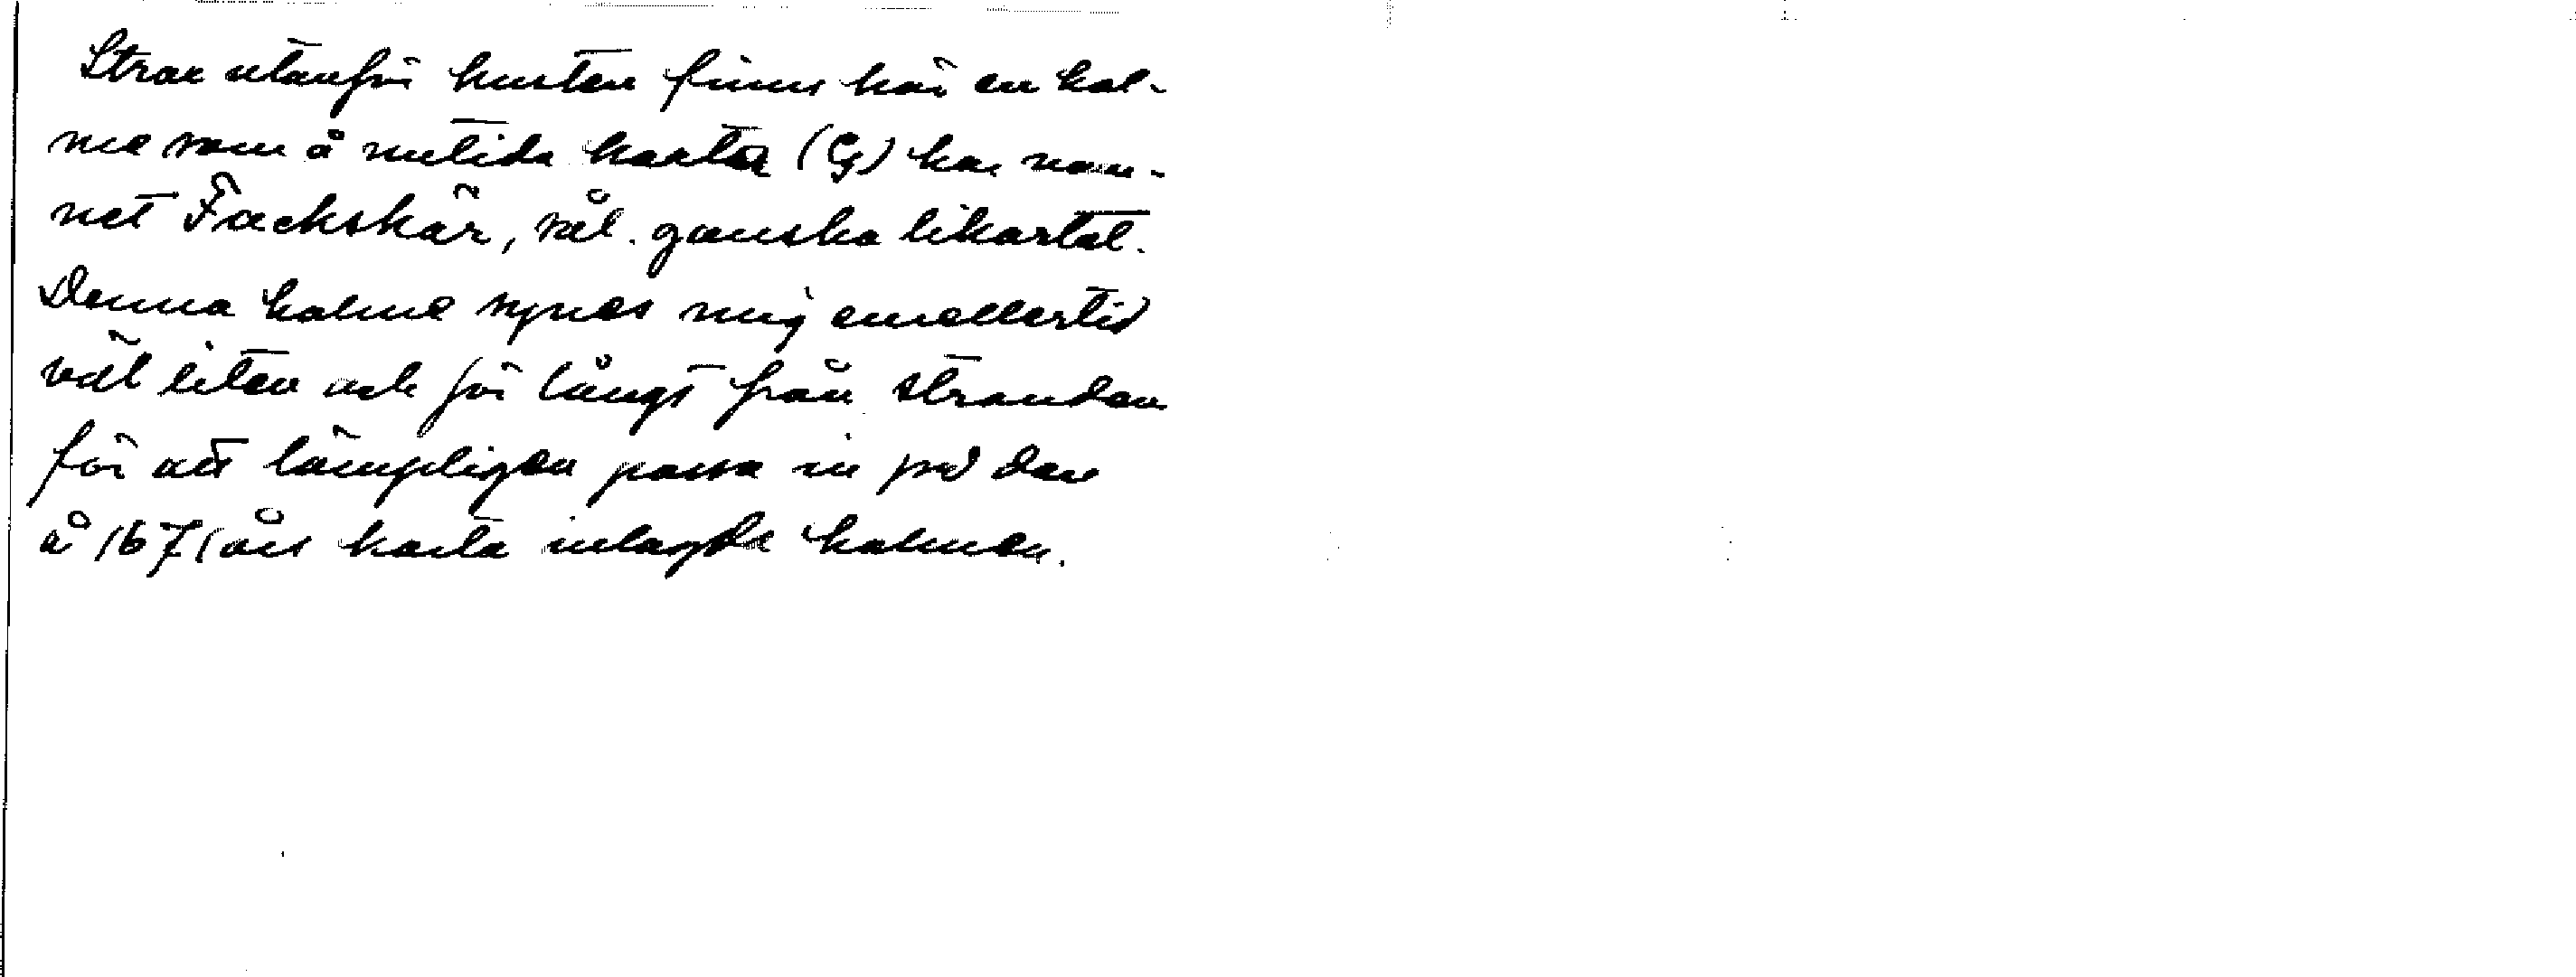 Strax utanför kusten finns här en hol-
me som å nutida karta (Eg) har nam-
net Fäckskär, sål. ganska likartat.
Denna holme synes mig emellertid
väl liten och för långt från stranden
för att lämpligen passa in på den
å 1671 års karta inlagda holmen.